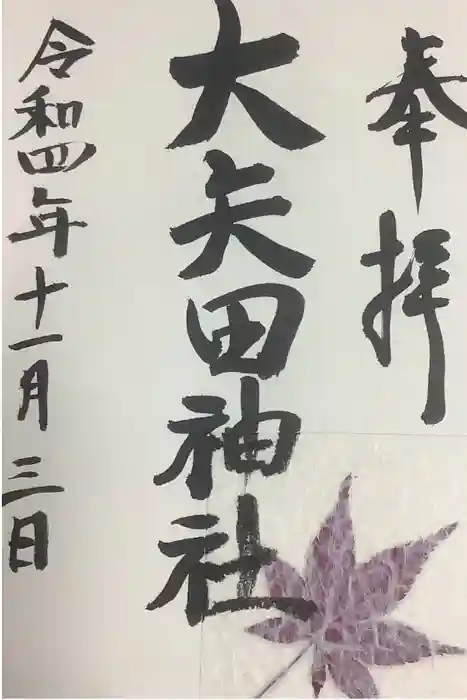 奉拝
大矢田神社
令和四年十一月三日